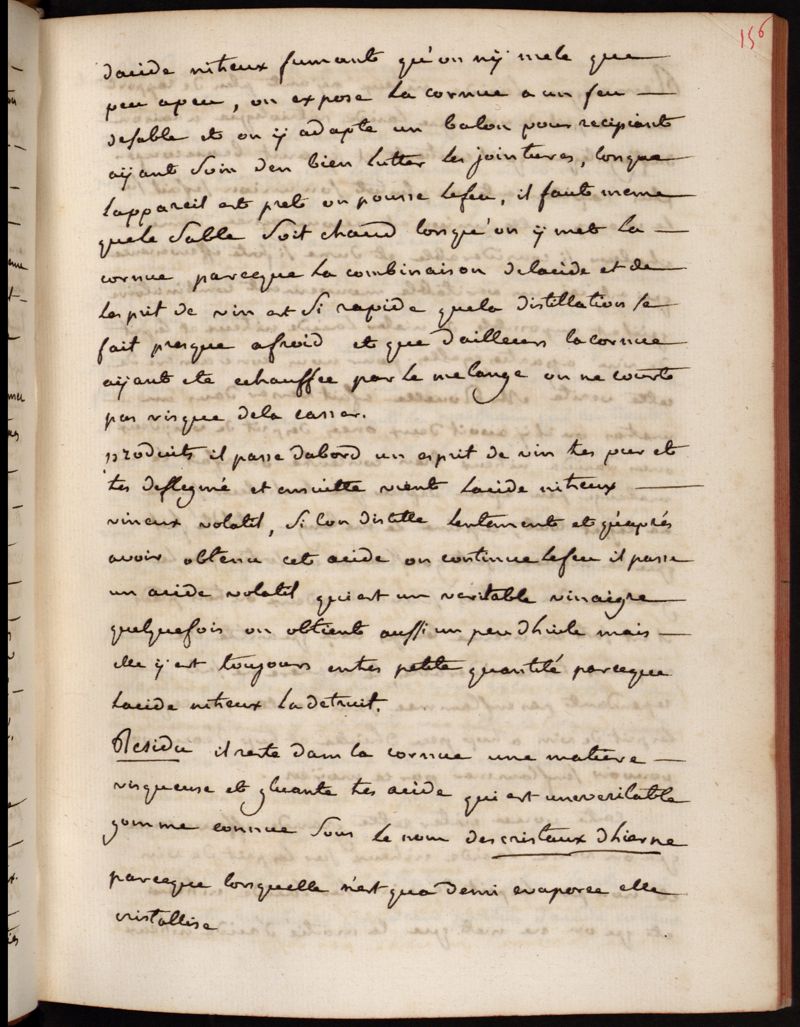 156
dacide nitreux fumant qu'on n'ÿ mele que
peu apeu, on expose la cornue a un feu —
desable et on ÿ adapte un balon pour recipiant
aÿant soin den bien lutter les jointures, lorsque
lappareil est pret on pousse lefeu, il faut meme
quele sable soit chaud lorsqu'on ÿ met la —
cornue parceque la combinaison delacide et de
lesprit de vin est si rapide quela distillation se
fait presque afroid et que dailleurs lacornue
aÿant ete echauffée par le melange on ne courte
pas risque dela casser.
produits il passe dabord un esprit de vin tes pur et
tes deflegmé et ensuitte vient lacide nitreux —
vineux volatil, si lon distille lentement et qu'aprés
avoir obtenu cet acide on continue lefeu il passe
un acide volatil quiest un veritable vinaigre
quelquefois on obtient aussi un peu dhuile mais —
elle ÿ est toujours entes petite quantité parceque
lacide nitreux la detruit.
Residu il reste dans la cornue une matiere —
visqueuse et gluante tes acide qui est uneveritable
gomme connue sous le nom descristaux dhierne
parceque lorsquelle n'est qua demi evaporee elle
cristallise